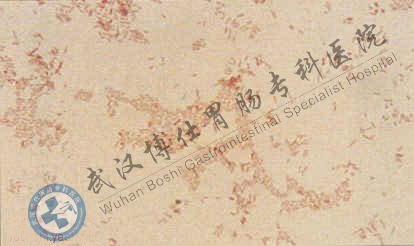 武汉博仕胃肠专科医院
Wuhan Boshi Gastrointestinal Specialist Hospital